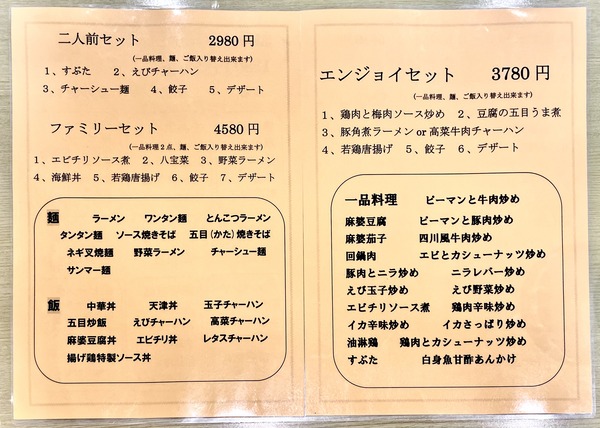 二人前セット 2980円
(一品料理、麺、ご飯入り替え出来ます)
1、すぶた 2、えびチャーハン
3、チャーシュー麺 4、餃子 5、デザート
ファミリーセット 4580円
(一品料理2点、麺、ご飯入り替え出来ます)
1、エビチリソース煮 2、八宝菜 3、野菜ラーメン
4、海鮮丼 5、若鶏唐揚げ 6、餃子 7、デザート
麺 ラーメン ワンタン麺 とんこつラーメン
タンタン麺 ソース焼きそば 五目(かた)焼きそば
ネギ叉焼麺 野菜ラーメン チャーシュー麺
サンマー麺
飯 中華丼 天津丼 玉子チャーハン
五目炒飯 えびチャーハン 高菜チャーハン
麻婆豆腐丼 エビチリ丼 レタスチャーハン
揚げ鶏特製ソース丼
エンジョイセット 3780円
(一品料理、麺、ご飯入り替え出来ます)
1、鶏肉と梅肉ソース炒め 2、豆腐の五目うま煮
3、豚角煮ラーメン or 高菜牛肉チャーハン
4、若鶏唐揚げ 5、餃子 6、デザート
一品料理 ピーマンと牛肉炒め
麻婆豆腐 ピーマンと豚肉炒め
麻婆茄子 四川風牛肉炒め
回鍋肉 エビとカシューナッツ炒め
豚肉とニラ炒め ニラレバー炒め
えび玉子炒め えび野菜炒め
エビチリソース煮 鶏肉辛味炒め
イカ辛味炒め イカさっぱり炒め
油淋鶏 鶏肉とカシューナッツ炒め
すぶた 白身魚甘酢あんかけ